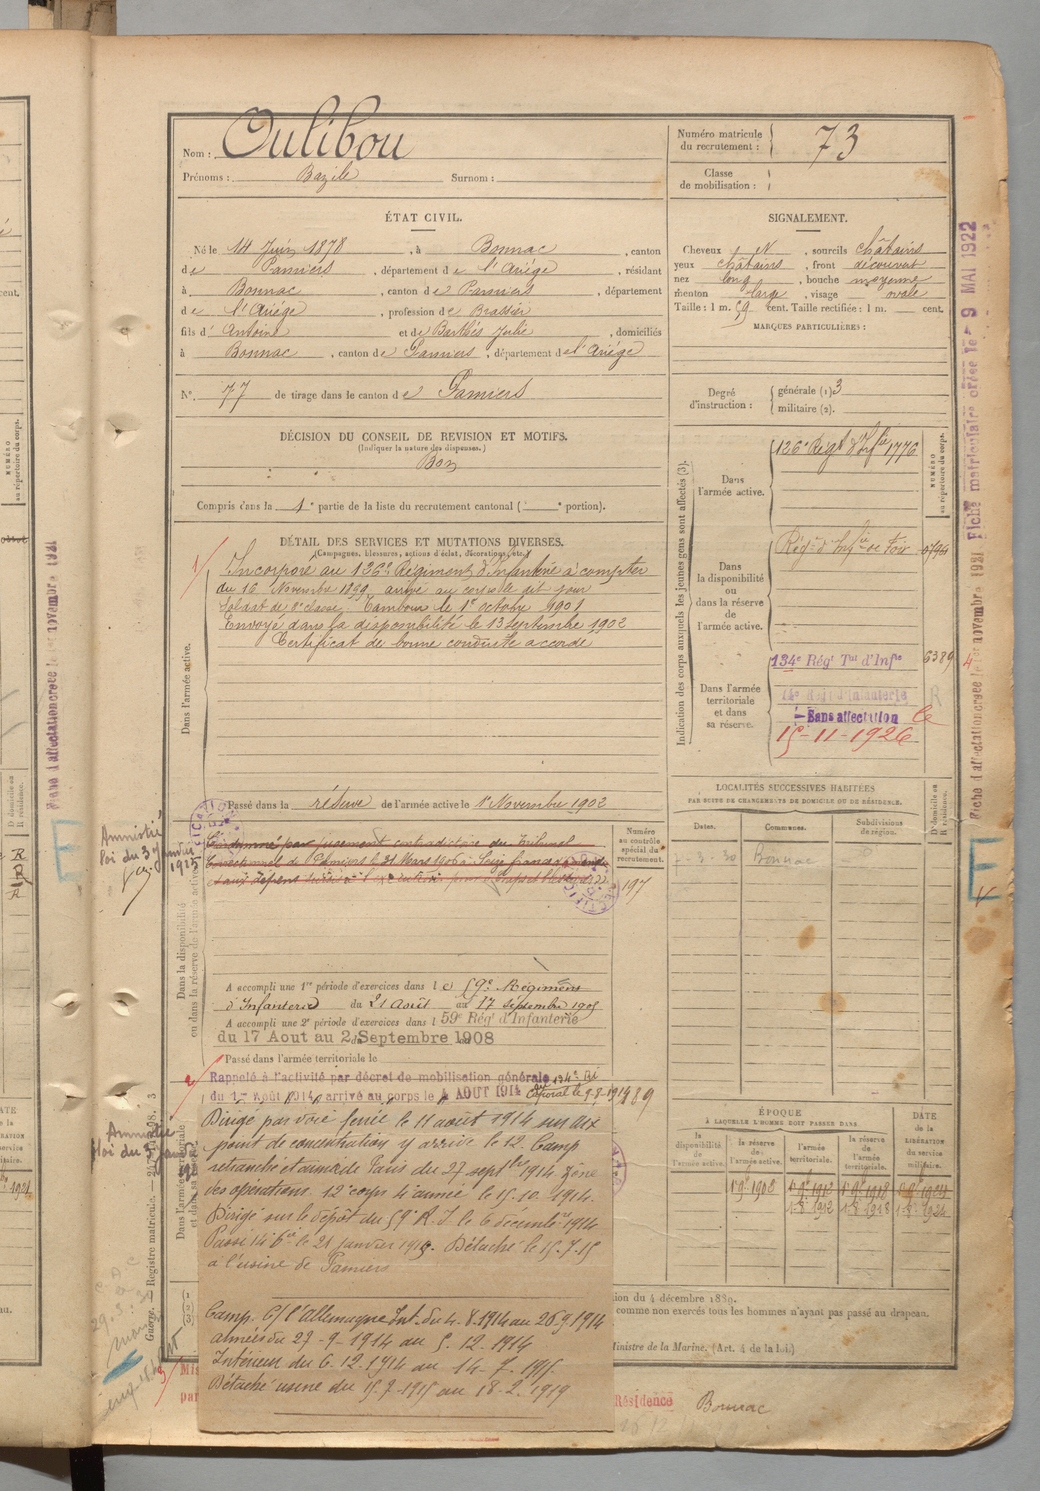 Nom : Oulibou
Prénoms : Bazile Surnom :
Numéro matricule du recrutement : 73
Classe de mobilisation :
ÉTAT CIVIL.
Né le 14 Juin 1878, à Bonnac, canton
de Pamiers, département de l'Ariège, résidant
à Bonnac, canton de Pamiers, département
de l'Ariège, profession de Brassier
fils d'Antoine et de Barthés Julie, domiciliés
à Bonnac, canton de Pamiers, département de l'Ariège
N° 77 de tirage dans le canton de Pamiers
SIGNALEMENT.
Cheveux N, sourcils châtains
yeux châtains, front découvert
nez long, bouche moyenne
menton large, visage ovale
Taille : 1 m. 59 cent. Taille rectifiée : 1 m. cent.
MARQUES PARTICULIÈRES :
Degré d'instruction : générale (1) 3
militaire (2).
DÉCISION DU CONSEIL DE REVISION ET MOTIFS.
(Indiquer la nature des dispenses.)
Bon
Compris dans la 1e partie de la liste du recrutement cantonal ( e portion).
DÉTAIL DES SERVICES ET MUTATIONS DIVERSES.
(Campagnes, blessures, actions d'éclat, décorations, etc.)
Dans l'armée active.
Incorporé au 126e Régiment d'Infanterie à compter
du 16 Novembre 1899 arrivé au corps le dit jour
Soldat de 2e classe. Tambour le 1er octobre 1901
Envoyé dans la disponibilité le 13 septembre 1902
Certificat de bonne conduite accordé
Passé dans la réserve de l'armée active le 1er Novembre 1902
Amnistié
loi du 3 janvier
1925
Dans la disponibilité
ou dans la réserve de l'armée active
Condamné par jugement contradictoire du Tribunal
Correctionnel de Pamiers le 31 Mars 1906 à Seize francs
Numéro au contrôle spécial du recrutement.
197
A accompli une 1re période d'exercices dans le 59e Régiment
d'Infanterie du 21 Août au 17 septembre 1905
A accompli une 2e période d'exercices dans l 59e Rég' d'Infanterie
du 17 Aout au 2 Septembre 1908
Passé dans l'armée territoriale le
Rappelé à l'activité par décret de mobilisation générale 134e RI
du 1er Août 1914, arrivé au corps le 4 AOUT 1914 Caporal le 9.8.1914
Dirigé par voie ferrée le 11 août 1914 sur un
point de concentration y arrive le 12. Camp
retranché et armée de Paris du 27 septbre 1914 Zône
des opérations. 12e corps 4e armée le 15.10.1914.
Dirigé sur le dépôt du 59e R.I. le 6 décembre 1914
Passé 14 bis le 21 janvier 1915. Détaché le 15.7.15
à l'usine de Pamiers
Camp. C/ l'Allemagne Int. du 4.8.1914 au 26.9.1914
armées du 27-9-1914 au 5.12.1914
Intérieur du 6.12.1914 au 14-7-1915
Détaché usine du 15.7.1915 au 18-2-1919
Indication des corps auxquels les jeunes gens sont affectés (3).
NUMÉRO au répertoire du corps.
Dans l'armée active.
126e Régt d'Infie 1776
Dans la disponibilité ou dans la réserve de l'armée active.
Régt d'Infie de Foix
Dans l'armée territoriale et dans sa réserve.
134e Rég' Tal d'Infie 6389
Sans affectation le
15-11-1926
LOCALITÉS SUCCESSIVES HABITÉES
PAR SUITE DE CHANGEMENTS DE DOMICILE OU DE RÉSIDENCE.
Dates. Communes. Subdivisions de région. D' domicile ou R. résidence.
7.3.30 Bonnac
ÉPOQUE
À LAQUELLE L'HOMME DOIT PASSER DANS
la disponibilité de l'armée active. la réserve de l'armée active. l'armée territoriale. la réserve de l'armée territoriale.
DATE de la LIBÉRATION du service militaire.
Fiche matriculaire créée le 9 MAI 1922
Fiche d'affectation créée le 1er novembre 1921
Fiche d'affectation créée le 1er novembre 1921
Amnistié
loi du 3 janvier
Registre matricule.
comme non exercés tous les hommes n'ayant pas passé au drapeau.
Ministre de la Marine. (Art. 4 de la loi.)
Résidence Bonnac